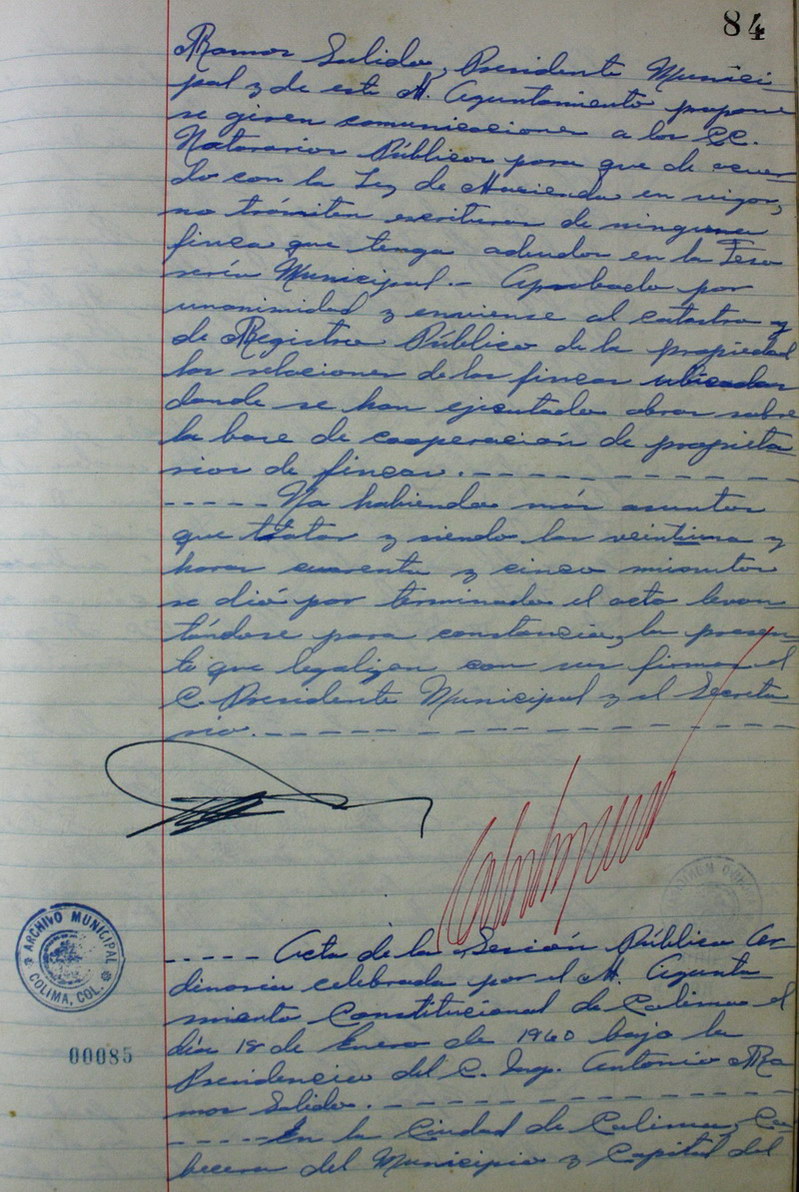 84
Ramos Salido, Presidente Munici-
pal y de este H. Ayuntamiento propone
se giren comunicaciones a los CC.
Notararios Públicos para que de acuer-
do con la Ley de Hacienda en vigor,
no trámiten escrituras de ninguna
finca que tenga adeudos en la Teso
rería Municipal.- Aprobado por
unanimidad y enviense al catastro y
de Registro Público de la propiedad
las relaciones de las fincas ubicadas
donde se han ejecutado obras sobre
la base de cooperación de propieta
rios de fincas.- - - - - - - - - -
- - - - - No habiendo más asuntos
que tratar y siendo las veintiuna y
horas cuarenta y cinco minutos
se dió por terminado el acto levan-
tándose para constancia, la presen-
te que legalizan con sus firmas el
C. Presidente Municipal y el Secreta-
rio.- - - - - - - - - - - - - -
ARCHIVO MUNICIPAL
COLIMA, COL.
- - - - - Acta de la Sesión Pública Or
dinaria celebrada por el H. Ayunta-
miento Constitucional de Colima el
día 18 de Enero de 1960 bajo la
00085
Presidencia del C. Ing. Antonio Ra
mos Salido.- - - - - - - - - - -
- - - - - En la Ciudad de Colima, Ca
becera del Municipio y Capital del